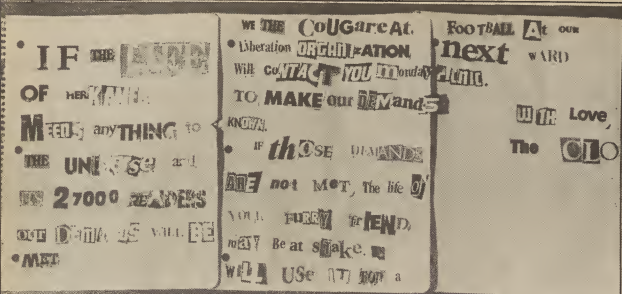 IF THE
OF HER
MEENS anyTHING to
THE UNIVERSE and
ITS 27000 READERS
our DEMANDS WILL BE
MET
WE THE CoUGareAt.
Liberation ORGANIZATION,
Will coNTACT YOU monday
TO MAKE our DEMandS
KNOWN.
IF thOSE DEMANDS
ARE not MeT, The life OF
YOUR FURRY FrIEND,
maY Be at stake. WE
WILL USe IT FOR a
FOOTBALL At OUR
next WARD
PICNIC.
WITH Love,
The CLO